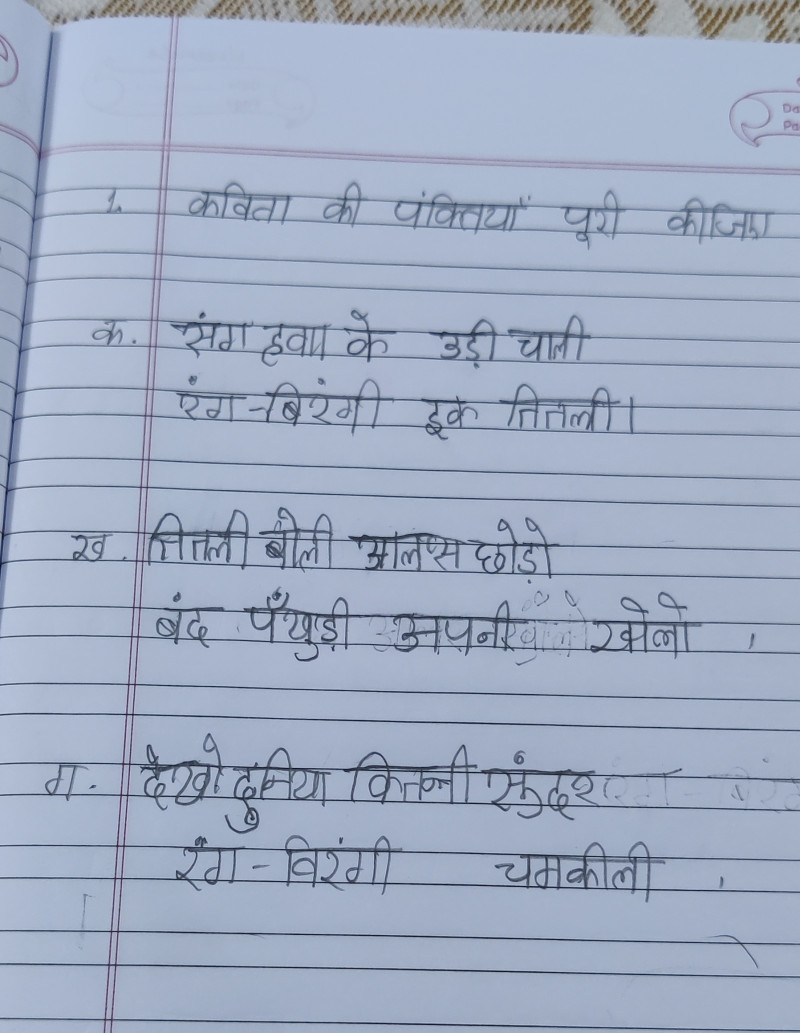 Da
Pa
1. कविता की पंक्तियाँ पूरी कीजिए
क. संग हवा के उड़ी चाली
रंग-बिरंगी इक तितली।
ख. तितली बोली आलस छोड़ो
बंद पँखुड़ी अपनी खोलो ,
ग. देखो दुनिया कितनी सुंदर
रंग-विरंगी चमकीली ,